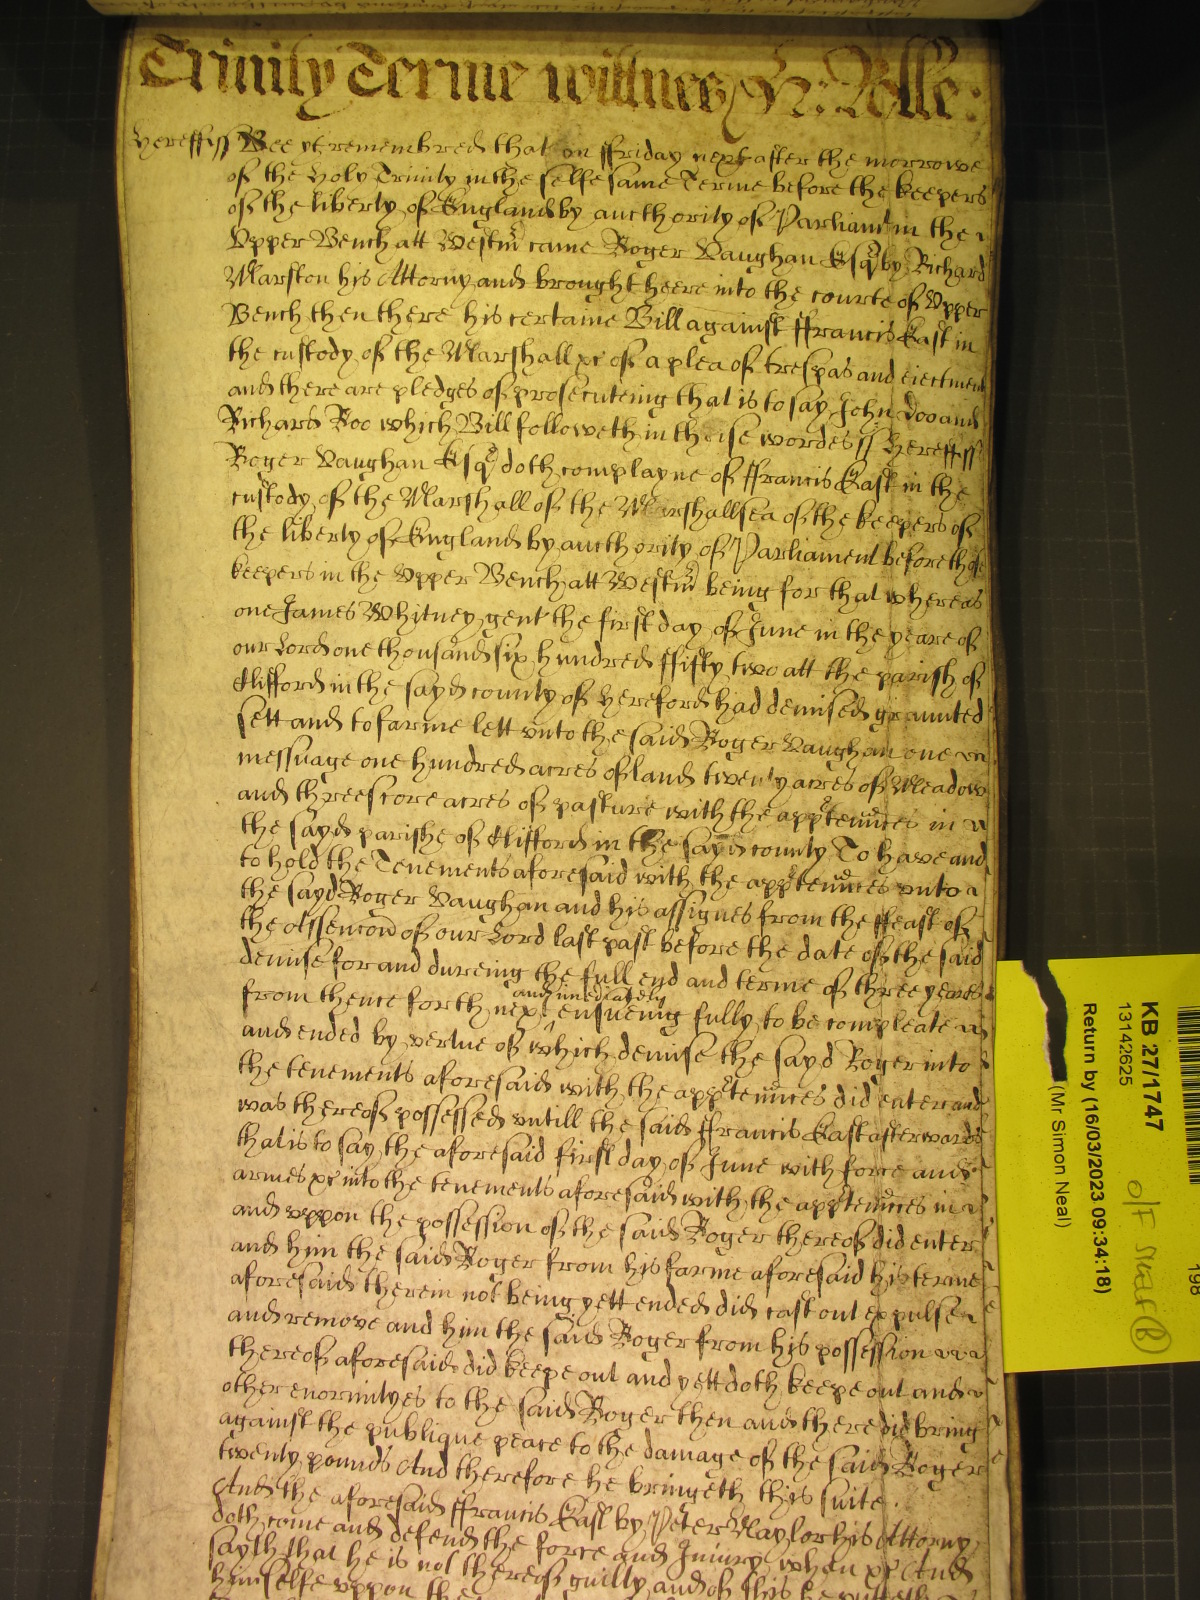 Trinity Terme wittnes H: Rolle:
Hereff ss Bee yt remembred that on ffriday next after the morrowe
of the Holy Trinity in the selfe same Terme before the keepers
of the liberty of England by aucthority of Parliamt in the
Vpper Bench att Westmr came Roger Vaughan Esqr by Richard
Marston his Attorny and brought heere into the courte of Vpper
Bench then there his certaine Bill against ffrancis East in
the custody of the Marshall &c of a plea of trespas and eiectment
and there are pledges of prosecuteing that is to say John Doo and
Richard Roo which Bill followeth in theise wordes ss Hereff ss
Roger Vaughan Esqr doth complayne of ffrancis East in the
custody of the Marshall of the Marshallsea of the keepers of
the liberty of England by aucthority of Parliament before those
keepers in the Vpper Bench att Westmr being for that whereas
one James Whitney gent the first day of June in the yeare of
our Lord one thousand six hundred ffifty two att the parish of
Clifford in the sayd county of Hereford had demised graunted
sett and to farme lett vnto the said Roger Vaughan one
messuage one hundred acres of land twenty acres of Meadow
and threescore acres of pasture with the appertennces in
the sayd parishe of Clifford in the sayd county To have and
to hold the Tenements aforesaid with the appertennces vnto
the sayd Roger Vaughan and his assignes from the ffeast of
the Assencon of our Lord last past before the date of the said
demise for and dureing the full end and terme of three yeares
and imediately
from thence forth next ensueing fully to be compleate
and ended by vertue of which demise the sayd Roger into
the tenements aforesaid with the appertennces did enter and
was thereof possessed vntill the said ffrancis East afterwards
that is to say the aforesaid first day of June with force and
armes &c into the tenements aforesaid with the appertennces in
and vppon the possession of the said Roger thereof did enter
and him the said Roger from his farme aforesaid his terme
aforesaid therein not being yett ended did cast out expulse
and remove and him the said Roger from his possession
thereof aforesaid did keepe out and yett doth keepe out and
other enormityes to the said Roger then and there did bring
against the publique peace to the damage of the said Roger
twenty pounds And therefore he bringeth this suite.
And the aforesaid ffrancis East by Peter Naylor his Attorny
doth come and defend the force and Iniury when &c And
sayth that he is not thereof guilty and of this he putteth
himselfe vppon the
KB 27/1747
13142625
Return by (16/03/2023 09:34:18)
(Mr Simon Neal)
198